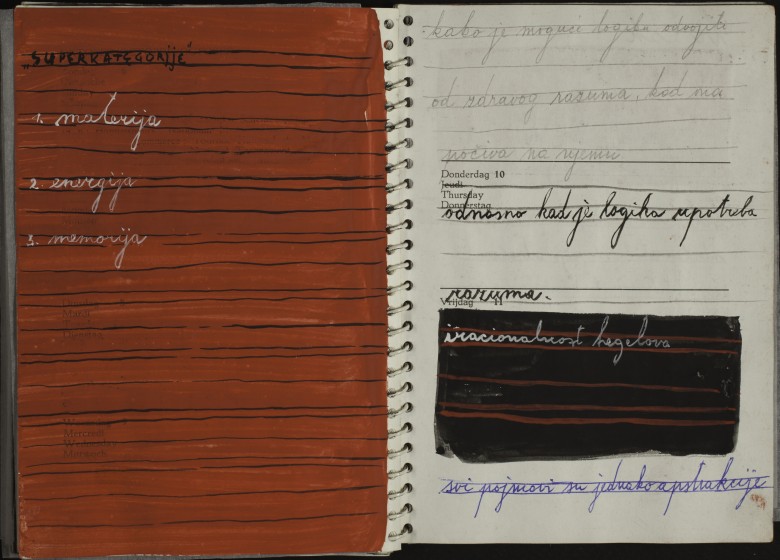 „SUPERKATEGORIJE"
1. materija
2. energija
3. memorija
Mardi
Mercredi
kako je moguće logiku odvojiti
od zdravog razuma, kod ma
počiva na njemu
Donderdag 10
Jeudi
Thursday
Donnerstag
odnosno kad je logika upotreba
razuma.
Vrijdag 11
iracionalnost hegelova
svi pojmovi su jednako apstrakcije